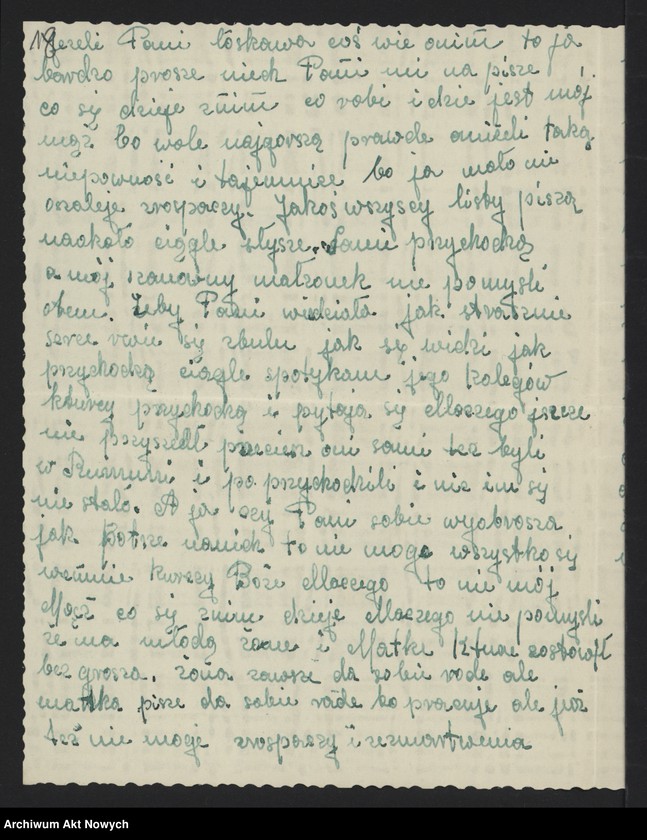 19
Jeżeli Pani łoskawa coś wie onim to ja
bardzo prosze niech Pani mi na pisze
co się dzieje znim co robi i dzie jest mój
mąż bo wole najgorszą prawde aniżeli taką
niepewność i tajemnice bo ja mało nie
oszaleje zrospaczy. Jakoś wszyscy listy piszą
naokoło ciągle słysze. Sami przychodzą
a mój szanowny małzonek nie pomyśli
otem. Żeby Pani widziała jak strasznie
serce rwie się zbulu jak się widzi jak
przychodzą ciągle spotykam jego kolegów
kturzy przychodzą i pytają się dlaczego jeszcze
nie przyszedł przeciesz oni sami też byli
w Rumuni i po przychodzili i nic im się
nie stało. A ja czy Pani sobie wyobrosza
jak patrze nanich to nie moge wszystko się
wemnie burzy Boże dlaczego to nie mój
Mąż co się znim dzieje dlaczego nie pomyśli
że ma młodą żone i Matke kture zostawił
bez grosza. żona zawsze da sobie rade ale
matka pisze da sobie rade bo pracuje ale już
też nie moge zrospaczy i zezmartwienia
Archiwum Akt Nowych